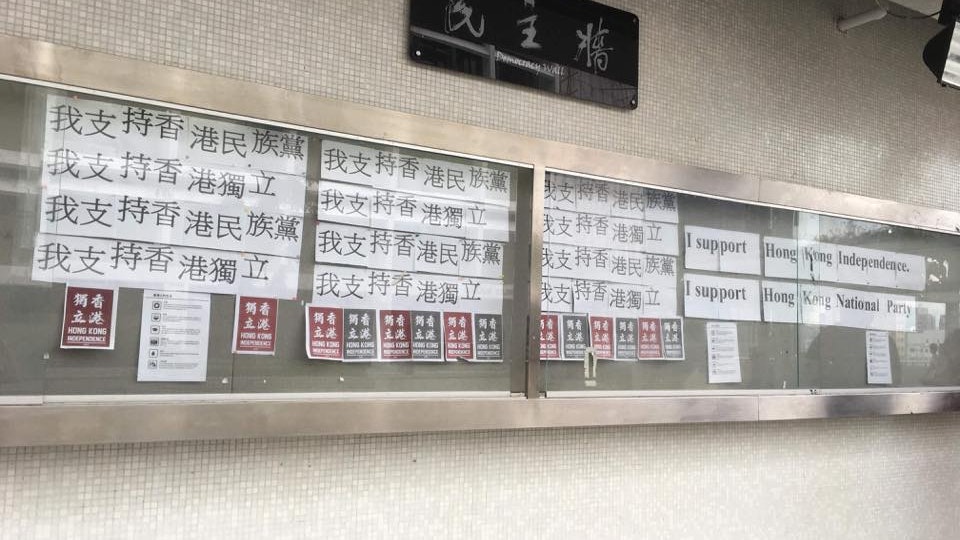 民主牆
Democracy Wall
我支持香港民族黨
我支持香港獨立
我支持香港民族黨
我支持香港獨立
香港
獨立
HONG KONG
INDEPENDENCE
香港
獨立
HONG KONG
INDEPENDENCE
我支持香港民族黨
我支持香港獨立
我支持香港民族黨
我支持香港獨立
香港
獨立
HONG KONG
INDEPENDENCE
香港
獨立
HONG KONG
INDEPENDENCE
香港
獨立
HONG KONG
INDEPENDENCE
香港
獨立
HONG KONG
INDEPENDENCE
香港
獨立
HONG KONG
INDEPENDENCE
香港
獨立
HONG KONG
INDEPENDENCE
我支持香港民族黨
我支持香港獨立
我支持香港民族黨
我支持香港獨立
香港
獨立
HONG KONG
INDEPENDENCE
香港
獨立
HONG KONG
INDEPENDENCE
香港
獨立
HONG KONG
INDEPENDENCE
香港
獨立
HONG KONG
INDEPENDENCE
香港
獨立
HONG KONG
INDEPENDENCE
香港
獨立
HONG KONG
INDEPENDENCE
I support Hong Kong Independence.
I support Hong Kong National Party